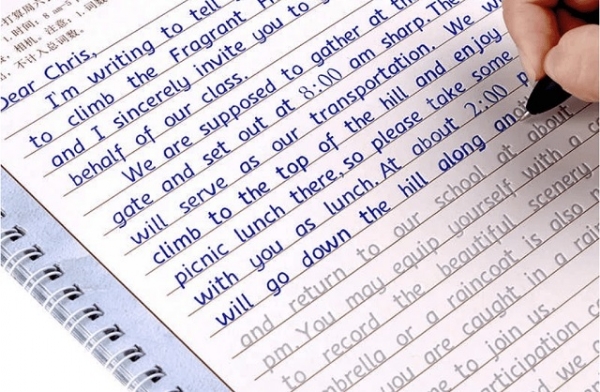 打算周六
1.时间: 8 am-5
相机. 注意: 1.词数
不计入总词数.
Dear Chris,
I'm writing to tell
to climb the Fragrant
and I sincerely invite you to
behalf of our class.
We are supposed to gather at the
gate and set out at 8:00 am sharp. The
will serve as our transportation. We
climb to the top of the hill and enjoy
picnic lunch there, so please take some
with you as lunch. At about 2:00
will go down the hill along
and return to our school at about
pm. You may equip yourself with a
to record the beautiful scenery.
or a raincoat is also
you are caught in a
to join us.
participation
we